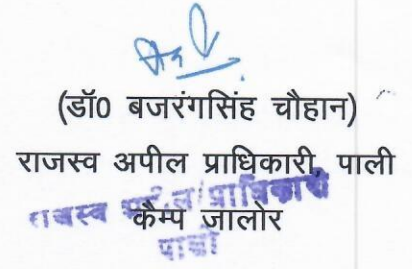 (डॉ0 बजरंगसिंह चौहान)
राजस्व अपील प्राधिकारी, पाली
कैम्प जालोर
राजस्व अपील प्राधिकारी
पाली